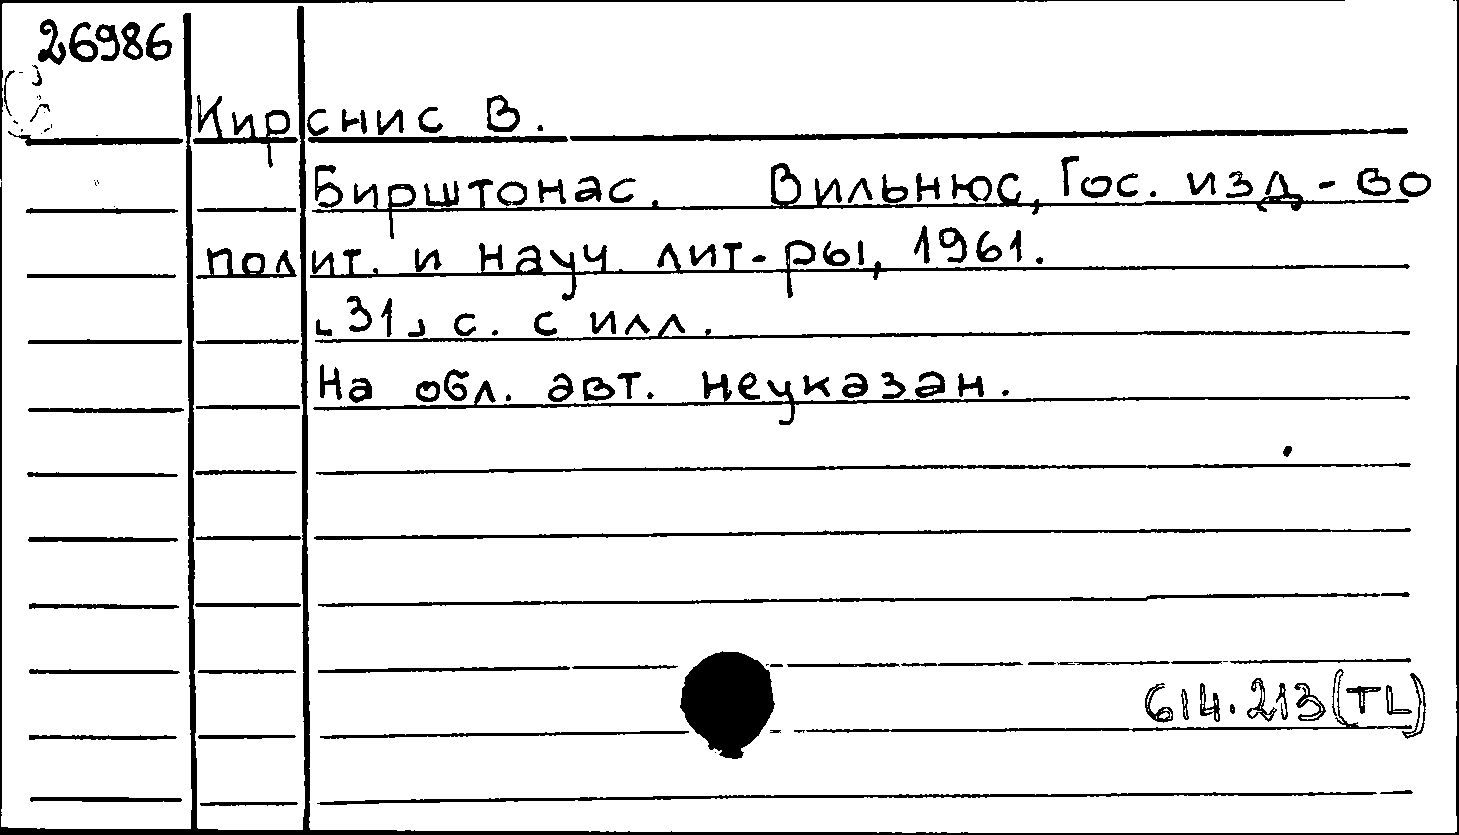 26986
Кирснис В.
Бирштонас. Вильнюс, Гос. изд-во
полит. и науч. лит-ры, 1961.
[31] с. с илл.
На обл. авт. неуказан.
614.213(TL)